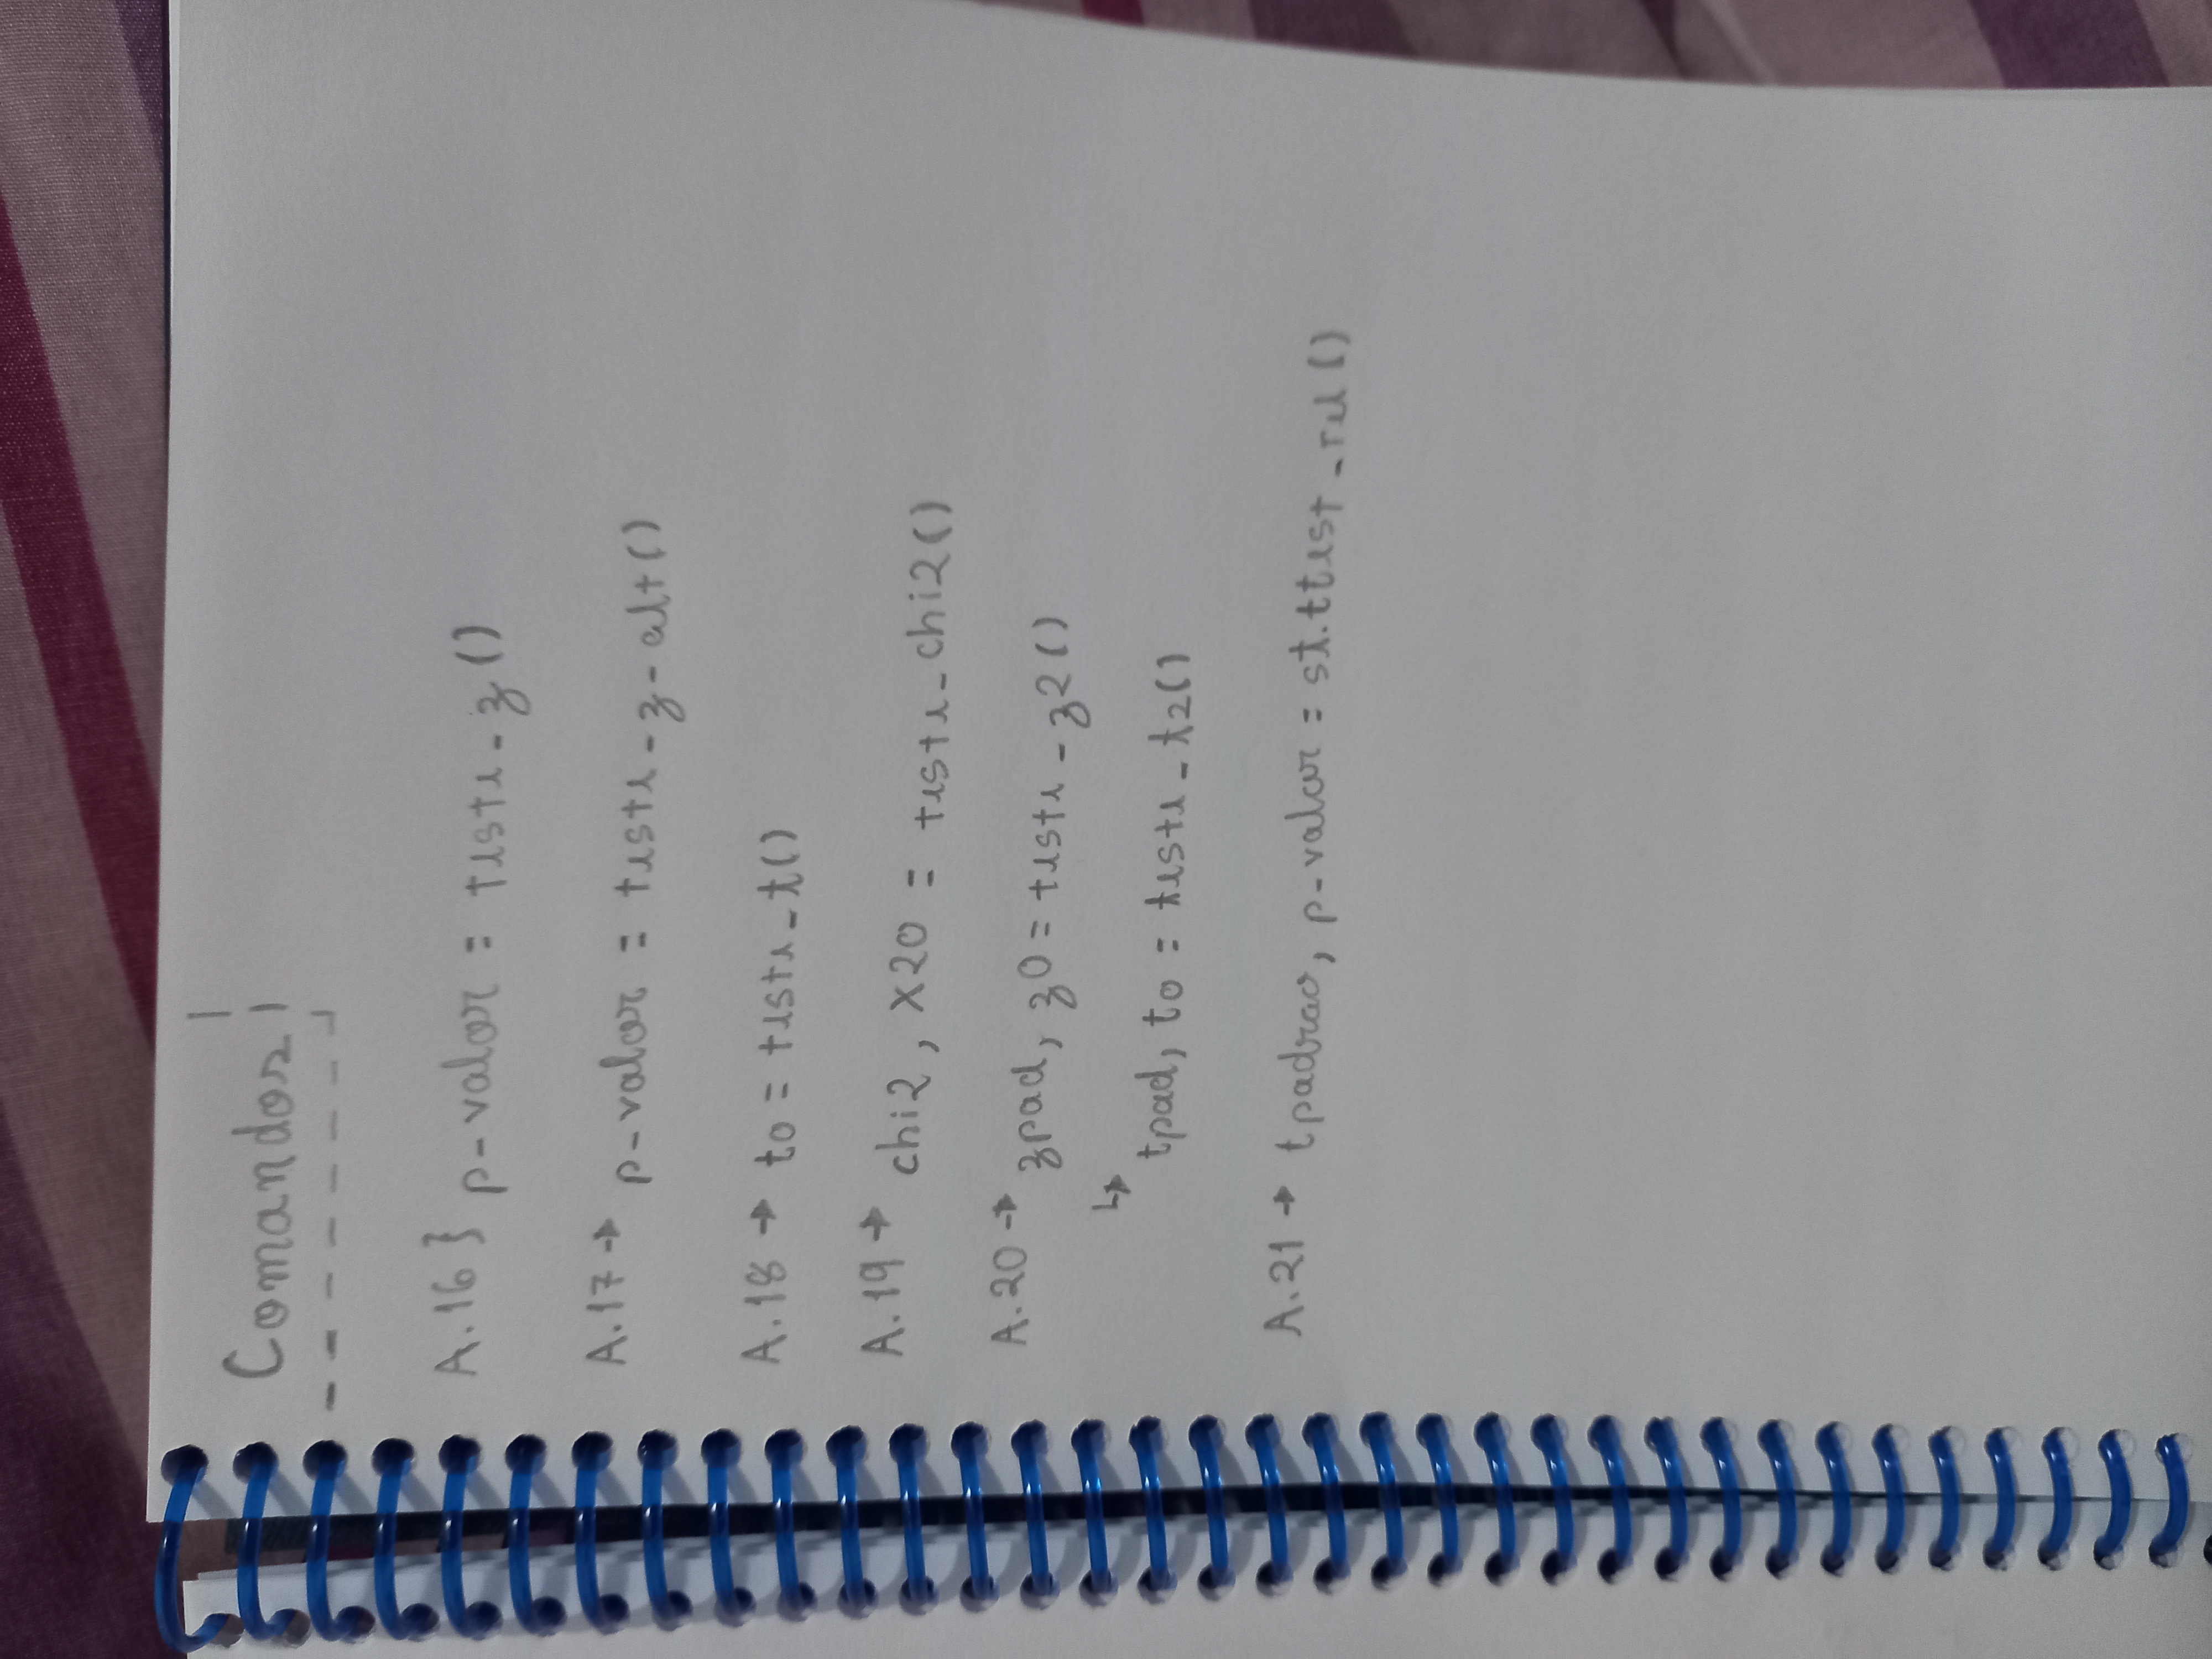 Comandos
A.16 } p-valor = teste_z()
A.17 → p-valor = teste_z_alt()
A.18 → t0 = teste_t()
A.19 → chi2, x20 = teste_chi2()
A.20 → zpad, z0 = teste_z2()
↳ tpad, t0 = teste_t2()
A.21 → tpadrao, p-valor = st.ttest_rel()